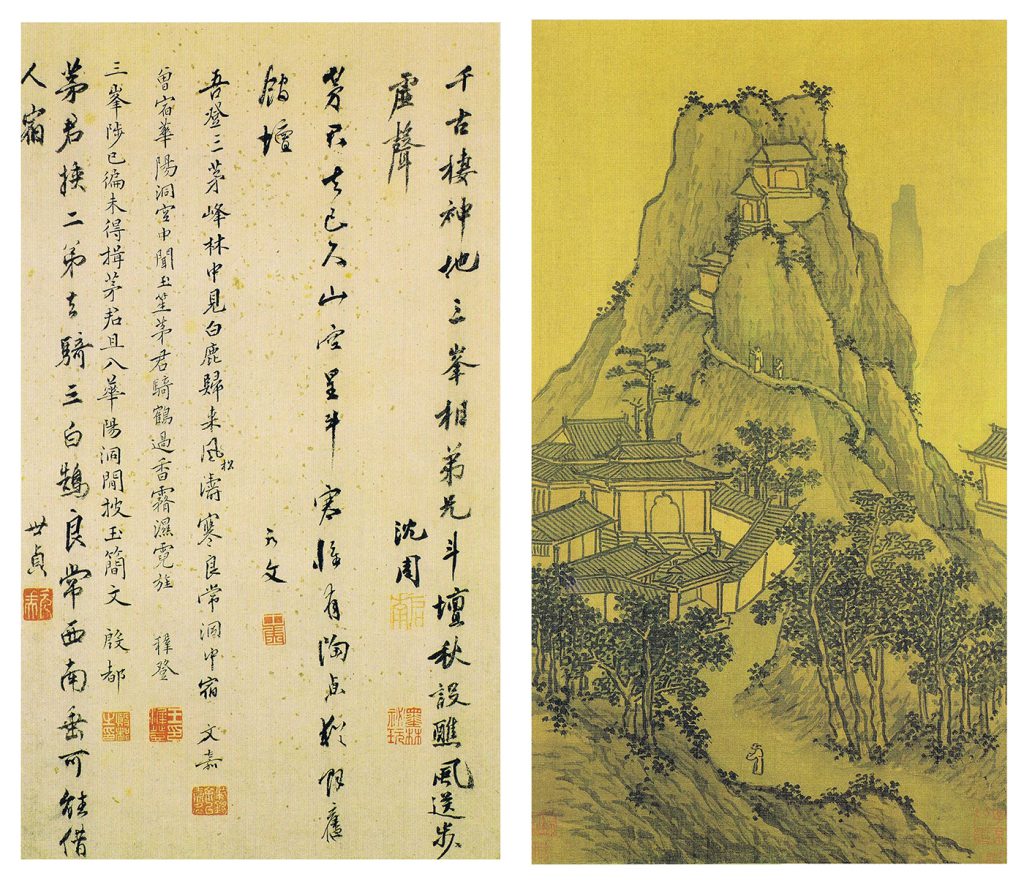 千古棲神地三峯相弟兄斗壇秋設醮風送步
虛聲 沈周
茅君去已久山空星斗寒惟有陶舊
館壇
吾登三茅峰林中見白鹿歸来風松濤寒良常洞中宿 文嘉
曾宿華陽洞宮中聞玉笙茅君騎鶴過香霧濕霓旌 穉登
三峯陟已徧未得揖茅君且入華陽洞閒披玉簡文 殷都
茅君挾二弟去騎三白鵠良常西南垂可能借
人宿 世貞